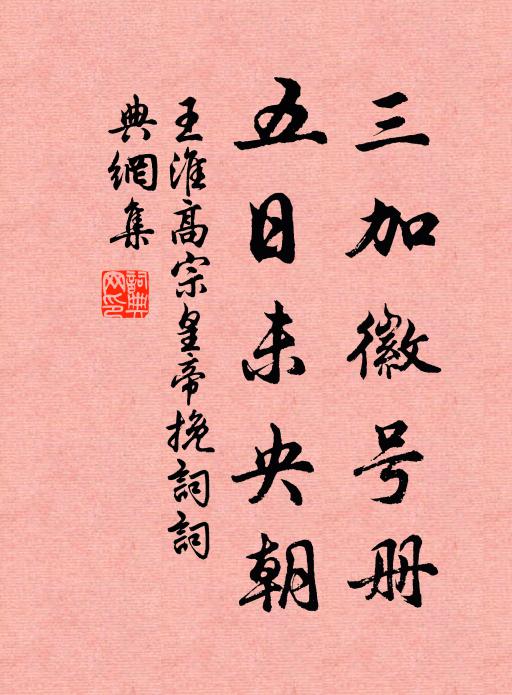 三加徽号册
五日未央朝
王淮高宗皇帝挽詞詞
典網集
詞典網印